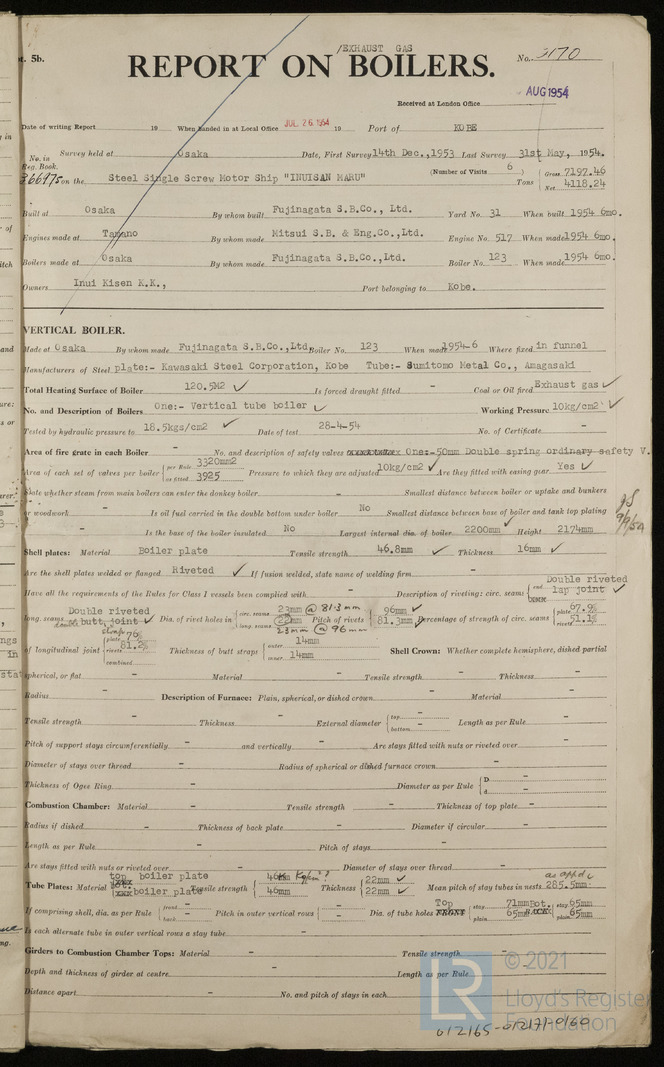 t. 5b.
/EXHAUST GAS
REPORT ON BOILERS.
No. 3170
AUG 1954
Received at London Office
Date of writing Report 19 When handed in at Local Office JUL 26 1954 19 Port of KOBE
No. in Reg. Book. Survey held at Osaka Date, First Survey 14th Dec.,1953 Last Survey 31st May, 1954.
36697S on the Steel Single Screw Motor Ship "INUISAN MARU" (Number of Visits 6 ) Tons Gross 7197.46 Net 4118.24
Built at Osaka By whom built Fujinagata S.B.Co., Ltd. Yard No. 31 When built 1954 6mo.
Engines made at Tamano By whom made Mitsui S.B. & Eng.Co., Ltd. Engine No. 517 When made 1954 6mo.
Boilers made at Osaka By whom made Fujinagata S.B.Co.,Ltd. Boiler No. 123 When made 1954 6mo.
Owners Inui Kisen K.K., Port belonging to Kobe.
VERTICAL BOILER.
Made at Osaka By whom made Fujinagata S.B.Co.,Ltd. Boiler No. 123 When made 1954-6 Where fixed in funnel
Manufacturers of Steel plate:- Kawasaki Steel Corporation, Kobe Tube:- Sumitomo Metal Co., Amagasaki
Total Heating Surface of Boiler 120.5M2 ✓ Is forced draught fitted - Coal or Oil fired Exhaust gas ✓
No. and Description of Boilers One:- Vertical tube boiler ✓ Working Pressure 10kg/cm2 ✓
Tested by hydraulic pressure to 18.5kgs/cm2 ✓ Date of test 28-4-54 No. of Certificate -
Area of fire grate in each Boiler - No. and description of safety valves One:-50mm Double spring ordinary safety V.
Area of each set of valves per boiler per Rule 3320mm2 as fitted 3925 Pressure to which they are adjusted 10kg/cm2 ✓ Are they fitted with easing gear Yes ✓
State whether steam from main boilers can enter the donkey boiler - Smallest distance between boiler or uptake and bunkers
or woodwork - Is oil fuel carried in the double bottom under boiler No Smallest distance between base of boiler and tank top plating
- Is the base of the boiler insulated No Largest internal dia. of boiler 2200mm ✓ Height 2174mm
Shell plates: Material Boiler plate Tensile strength 46.8mm ✓ Thickness 16mm ✓
Are the shell plates welded or flanged Riveted ✓ If fusion welded, state name of welding firm -
Have all the requirements of the Rules for Class I vessels been complied with - Description of riveting: circ. seams end Double riveted lap joint ✓
long. seams Double riveted butt joint ✓ Dia. of rivet holes in circ. seams 23mm @ 81.3mm long. seams 22mm 23mm @ 96mm Pitch of rivets 96mm ✓ 81.3mm Percentage of strength of circ. seams plate 67.9% rivets 51.1%
of longitudinal joint plate 76% rivets 81.2% combined Thickness of butt straps outer 14mm inner 14mm Shell Crown: Whether complete hemisphere, dished partial
spherical, or flat - Material - Tensile strength - Thickness -
Radius - Description of Furnace: Plain, spherical, or dished crown - Material -
Tensile strength - Thickness - External diameter top - bottom - Length as per Rule -
Pitch of support stays circumferentially - and vertically - Are stays fitted with nuts or riveted over -
Diameter of stays over thread - Radius of spherical or dished furnace crown -
Thickness of Ogee Ring - Diameter as per Rule D - d -
Combustion Chamber: Material - Tensile strength - Thickness of top plate -
Radius if dished - Thickness of back plate - Diameter if circular -
Length as per Rule - Pitch of stays -
Are stays fitted with nuts or riveted over - Diameter of stays over thread -
Tube Plates: Material top boiler plate bot. boiler plate Tensile strength 46 Kg/mm² 46mm Thickness 22mm ✓ 22mm ✓ Mean pitch of stay tubes in nests as app'd 285.5mm
If comprising shell, dia. as per Rule front - back - Pitch in outer vertical rows - Dia. of tube holes Top stay 71mm plain 65mm Bot. stay 65mm plain 65mm
Is each alternate tube in outer vertical rows a stay tube -
Girders to Combustion Chamber Tops: Material - Tensile strength -
Depth and thickness of girder at centre - Length as per Rule -
Distance apart - No. and pitch of stays in each -
LR © 2021 Lloyd's Register Foundation
012165-012171-0160